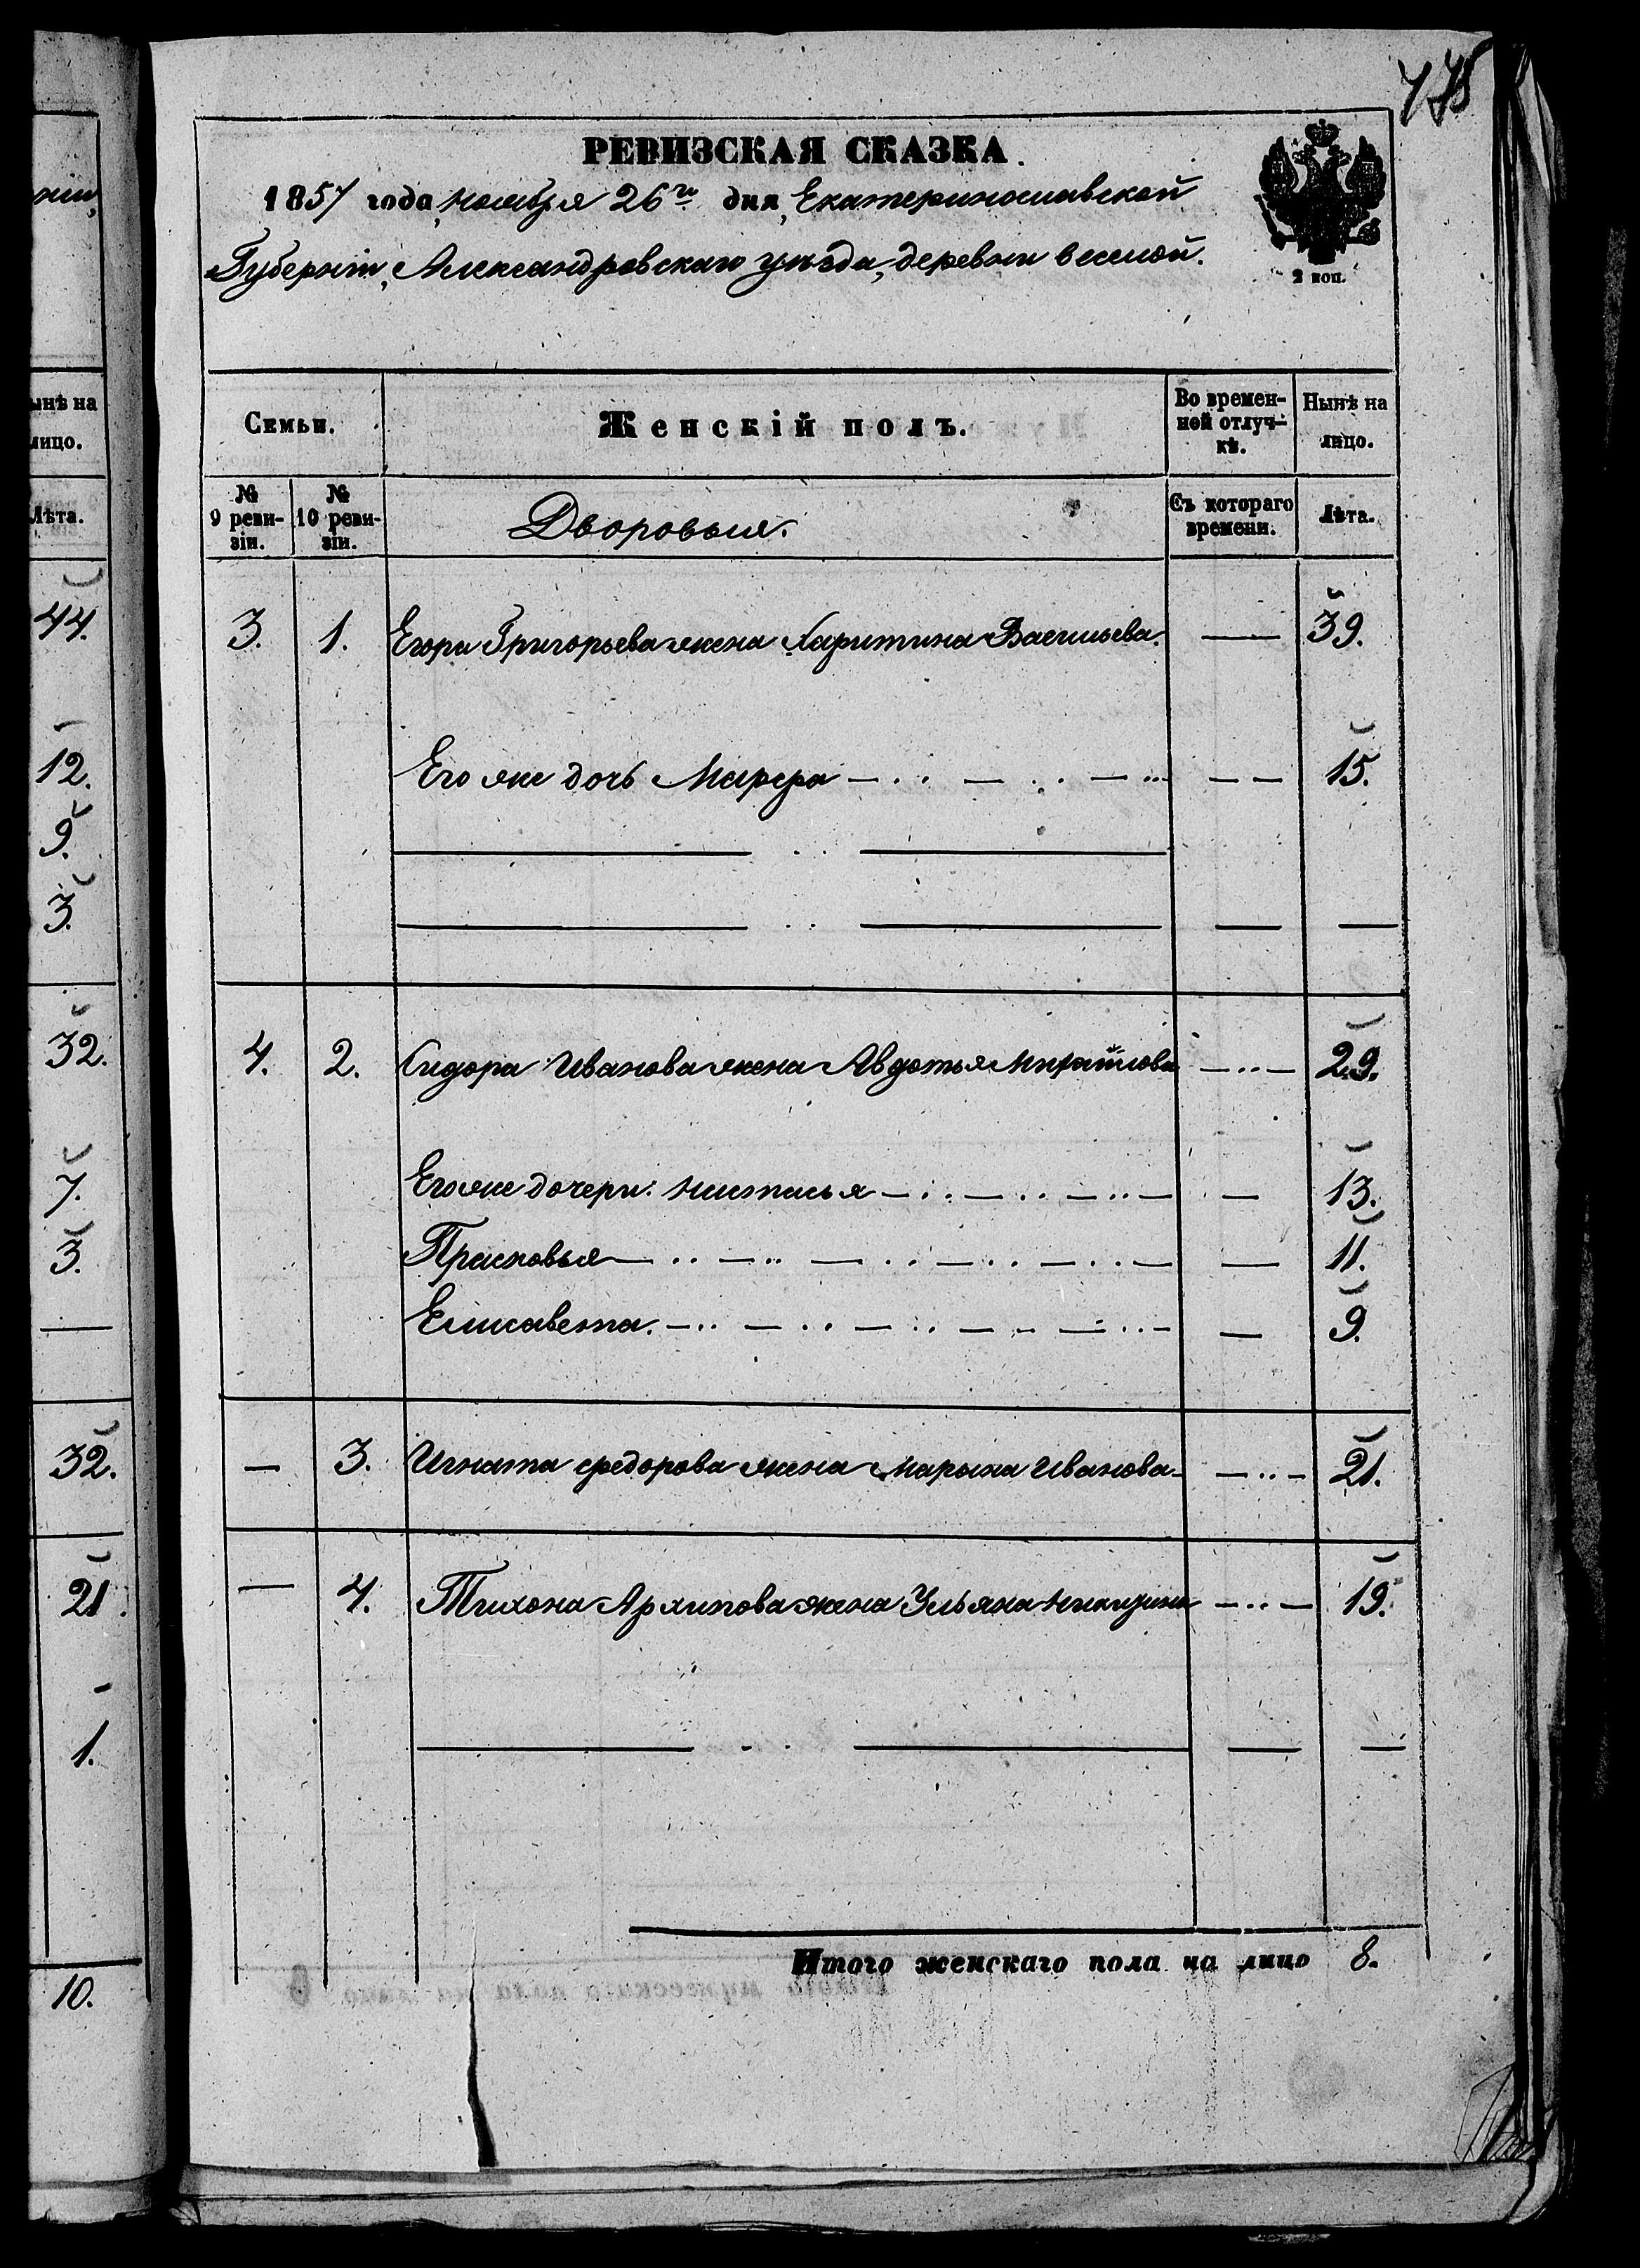 775
РЕВИЗСКАЯ СКАЗКА.
1857 года, ноября 26го дня, Екатеринославской
Губерніи, Александровскаго уѣзда, деревни веселой.
2 коп.
нiи,
ынѣ на
лицо.
Лѣта.
44.
12.
9.
3.
32.
7.
3.
32.
21.
1.
10.
Семьи.
Женскій полъ.
Во времен-
ной отлуч-
кѣ.
Нынѣ на
лицо.
№
9 реви-
зіи.
№
10 реви-
зіи.
Дворовыя.
Съ котораго
времени.
Лѣта.
3. 1. Егора Григорьева жена Харитина Васильева. — 39.
Его же дочь Марфа — — 15.
4. 2. Сидора Иванова жена Авдотья Михайлова — 29.
Его же дочери: Настасья — 13.
Прасковья — 11.
Елисавета. — 9.
— 3. Игната Федорова жена Марьяна Иванова — 21.
— 4. Тихона Архипова жена Ульяна — 19.
Итого женскаго пола на лицо 8.